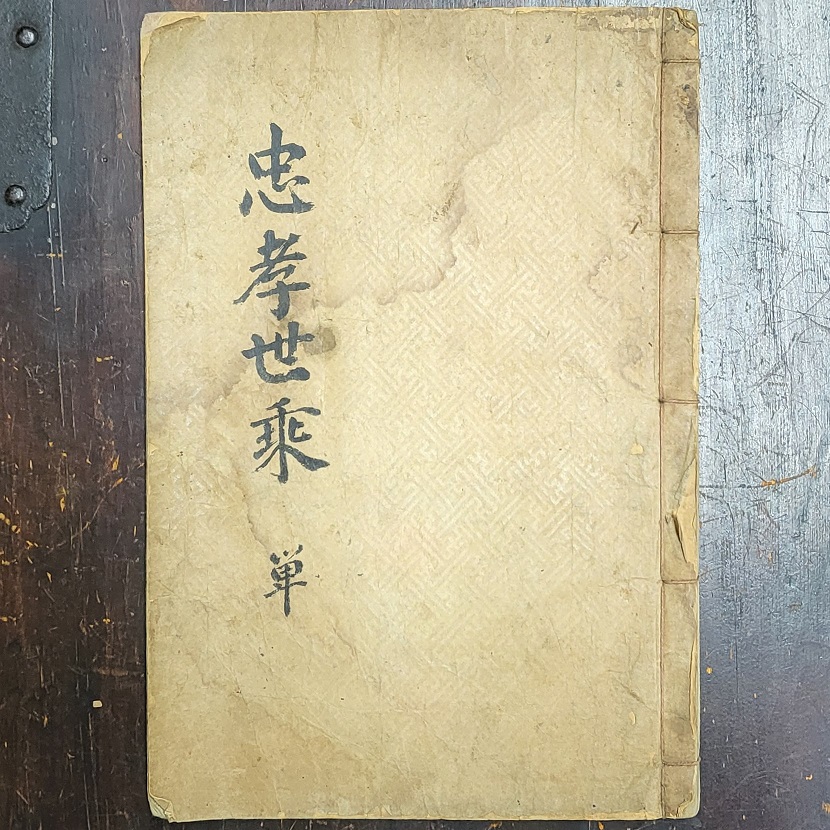 忠孝世乘
単